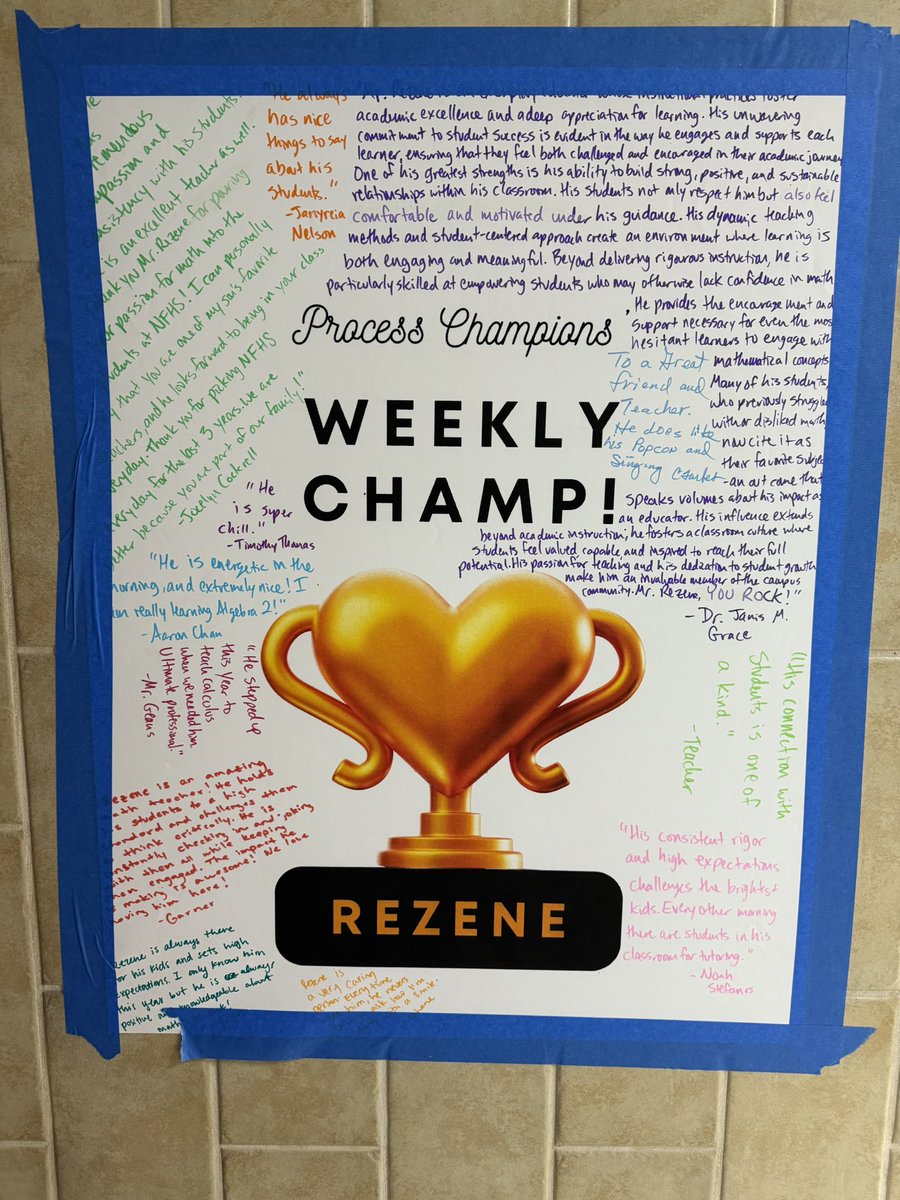 "He always
has nice
things to say
about his
students."
-Jamyreia
Nelson
academic excellence and a deep appreciation for learning. His unwavering
commitment to student success is evident in the way he engages and supports each
learner, ensuring that they feel both challenged and encouraged in their academic journey
One of his greatest strengths is his ability to build strong, positive, and sustainable
relationships within his classroom. His students not only respect him but also feel
comfortable and motivated under his guidance. His dynamic teaching
methods and student-centered approach create an environment where learning is
both engaging and meaningful. Beyond delivering rigorous instruction, he is
particularly skilled at empowering students who may otherwise lack confidence in math
. He provides the encouragement and
support necessary for even the most
hesitant learners to engage with
mathematical concepts
Many of his students,
who previously struggled
with or disliked math
now cite it as
their favorite subject
-an out come that
speaks volumes about his impact as
an educator. His influence extends
beyond academic instruction; he fosters a classroom culture where
students feel valued capable, and inspired to reach their full
potential. His passion for teaching and his dedication to student growth
make him an invaluable member of the campus
community. Mr. Rezene, YOU ROCK!"
- Dr. Janis M.
Grace
passion and
consistency with his students.
is an excellent teacher as well.
Thank you Mr. Rezene for pouring
your passion for math into the
students at NFHS. I can personally
say that you are one of my son's favorite
teachers, and he looks forward to being in your class
everyday. Thank you for picking NFHS
everyday for the last 3 years. We are
better because you are part of our family!"
-Jocelyn Cockrell
Process Champions
WEEKLY
CHAMP!
To a Great
friend and
Teacher.
He does like
his Popcorn and
Singing
"He
is super
chill."
-Timothy Thomas
"He is energetic in the
morning, and extremely nice! I
am really learning Algebra 2!"
-Aaron Chan
"He stepped up
this year to
teach calculus
when we needed him.
Ultimate professional."
-Mr. Geaus
"His connection with
students is one of
a kind."
-Teacher
Rezene is an amazing
math teacher! He holds
his students to a high
standard and challenges them
to think critically. He is
constantly checking in and joking
with them all while keeping
them engaged. The impact he
is making is awesome! We love
having him here!
-Garner
"His consistent rigor
and high expectations
challenges the brightest
kids. Every other morning
there are students in his
classroom for tutoring."
- Noah
Stefanos
REZENE
Rezene is always there
for his kids and sets high
expectations. I only know him
this year but he is always
positive and knowledgeable about
math
Rezene is
a very caring
person. Every time
him, he never
ask how I'm
with a smile.